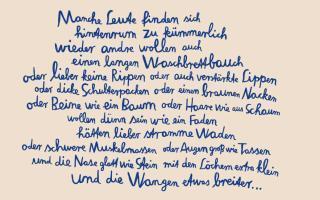 Manche Leute finden sich
hintenrum zu kümmerlich
wieder andre wollen auch
einen langen Waschbrettbauch
oder lieber keine Rippen oder auch verstärkte Lippen
oder dicke Schulterpacken oder einen braunen Nacken
oder Beine wie ein Baum oder Haare wie aus Schaum
wollen dünn sein wie ein Faden
hätten lieber stramme Waden
oder schwere Muskelmassen oder Augen groß wie Tassen
und die Nase glatt wie Stein mit den Löchern extra klein
und die Wangen etwas breiter...